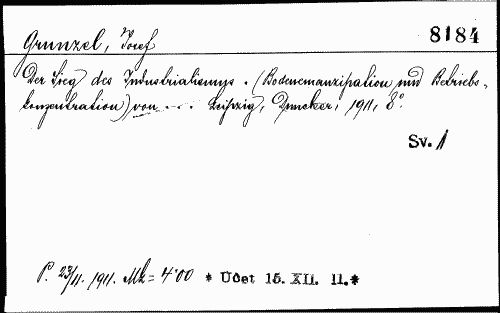 Grunzel, Josef
8184
Der Sieg des Industrialismus. (Bodenemanzipation und Betriebs-
konzentration) von .... Leipzig, Duncker, 1911, 8°.
Sv. 1
P. 23/11. 1911. Mk = 4·00 * Účet 15. XII. 11.*